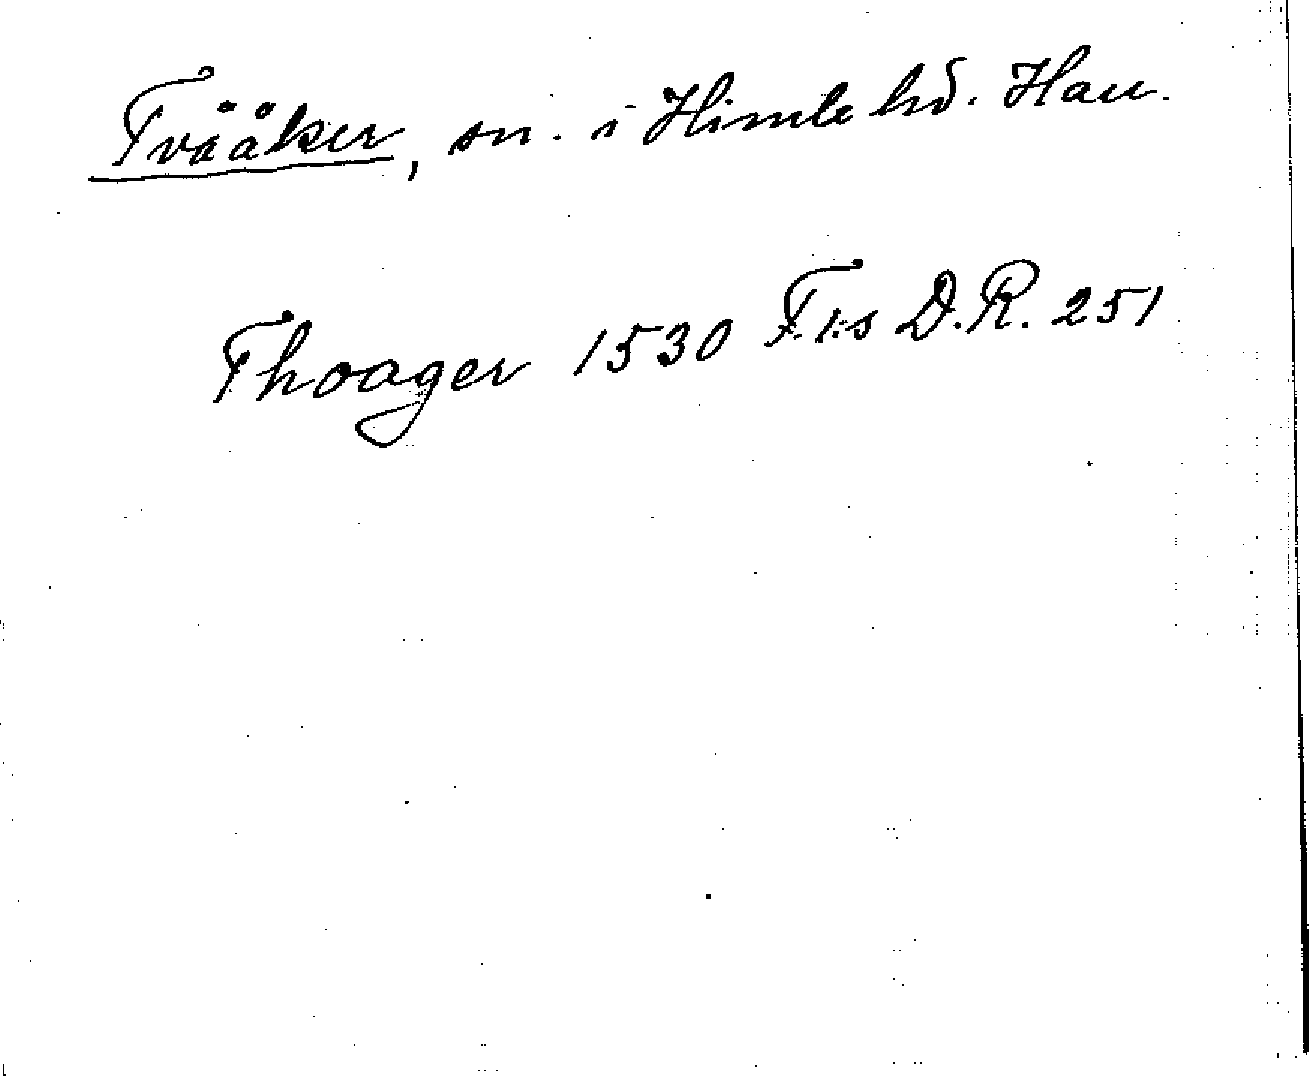 Tvååker, sn. i Himle hd. Hall.
Thoager 1530 F. I:s D.R. 251